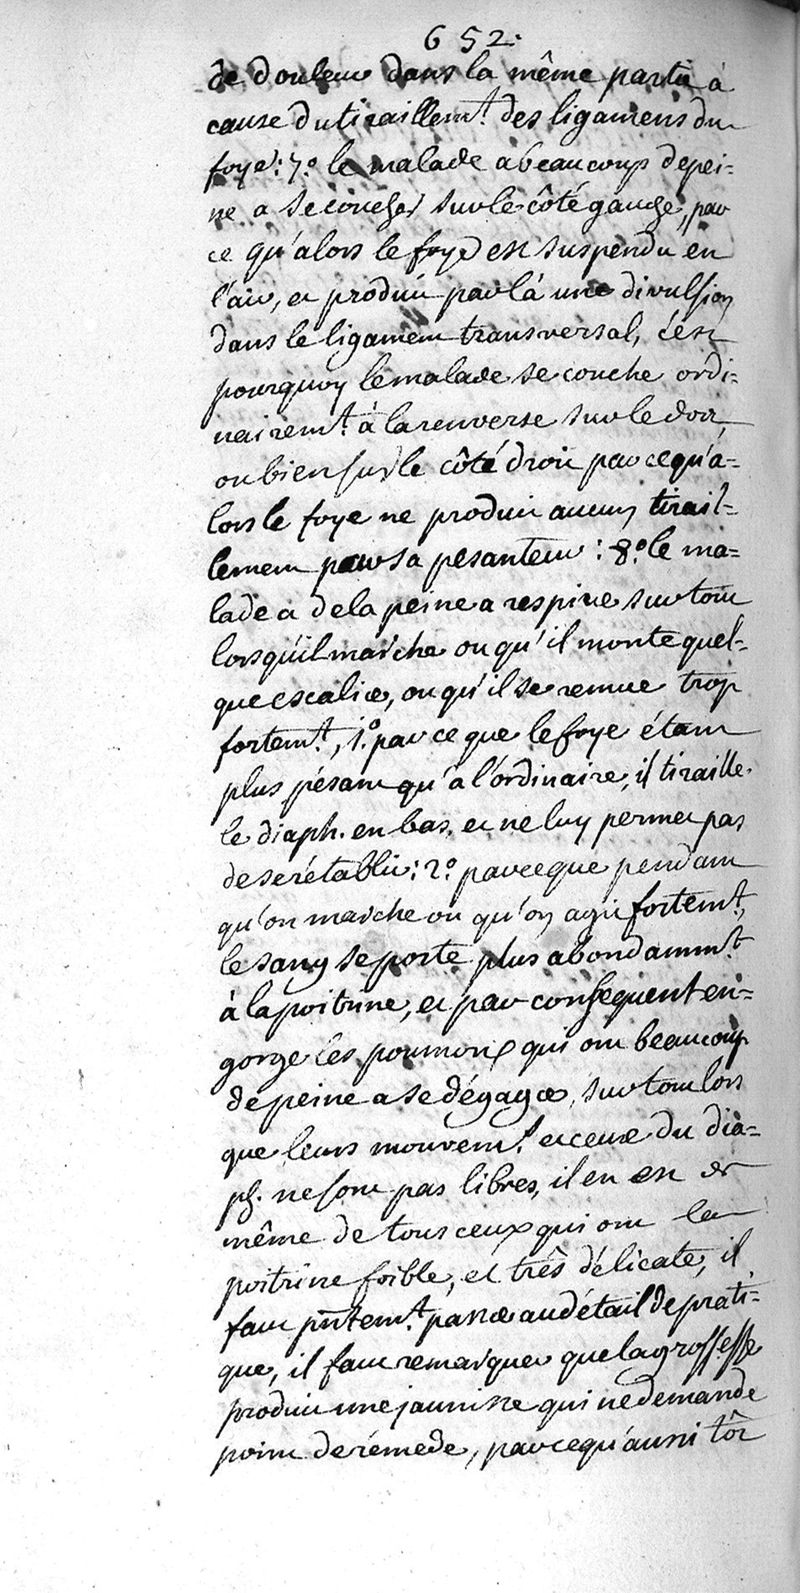 652.
de douleur dans la même partie à
cause du tiraillemt. des ligamens du
foye: 7.º le malade a beaucoup de pei=
ne a se coucher sur le côté gauche, par
ce qu'alors le foye est suspendu en
l'air, et produit par là une divulsion
dans le ligament transversal, c'est
pourquoy le malade se couche ordi=
nairemt. à la renverse sur le dos,
ou bien sur le côté droit parce qu'a=
lors le foye ne produit aucun tirail=
lement par sa pesanteur: 8.º le ma=
lade a de la peine a respirer sur tout
lorsqu'il marche ou qu'il monte quel=
que escalier, ou qu'il se remue trop
fortemt., 1.º par ce que le foye étant
plus pésant qu'à l'ordinaire, il tiraille
le diaph. en bas, et ne luy permet pas
de se rétablir: 2.º parceque pendant
qu'on marche ou qu'on agit fortemt.,
le sang se porte plus abondammt.
à la poitrine, et par conséquent en=
gorge les poumons qui ont beaucoup
de peine a se dégager, sur tout lors
que leurs mouvemt. et ceux du dia=
ph. ne sont pas libres, il en est de
même de tous ceux qui ont la
poitrine foible, et três délicate, il
faut pntemt. passer au détail de prati=
que, il faut remarquer que la grossesse
produit une jaunisse qui ne demande
point de rémede, parcequ'aussi tôt